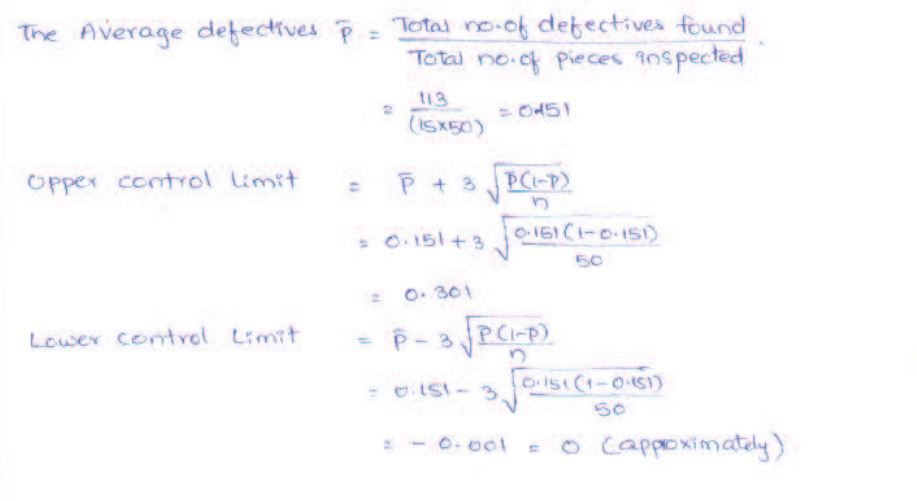 The Average defectives p̄ = Total no.of defectives found / Total no.of pieces inspected.
= 113 / (15x50) = 0.151
Upper control Limit = p̄ + 3 √(p̄(1-p) / n)
= 0.151 + 3 √(0.151(1-0.151) / 50)
= 0.301
Lower control Limit = p̄ - 3 √(p(1-p) / n)
= 0.151 - 3 √(0.151(1-0.151) / 50)
= - 0.001 = 0 (approximately)